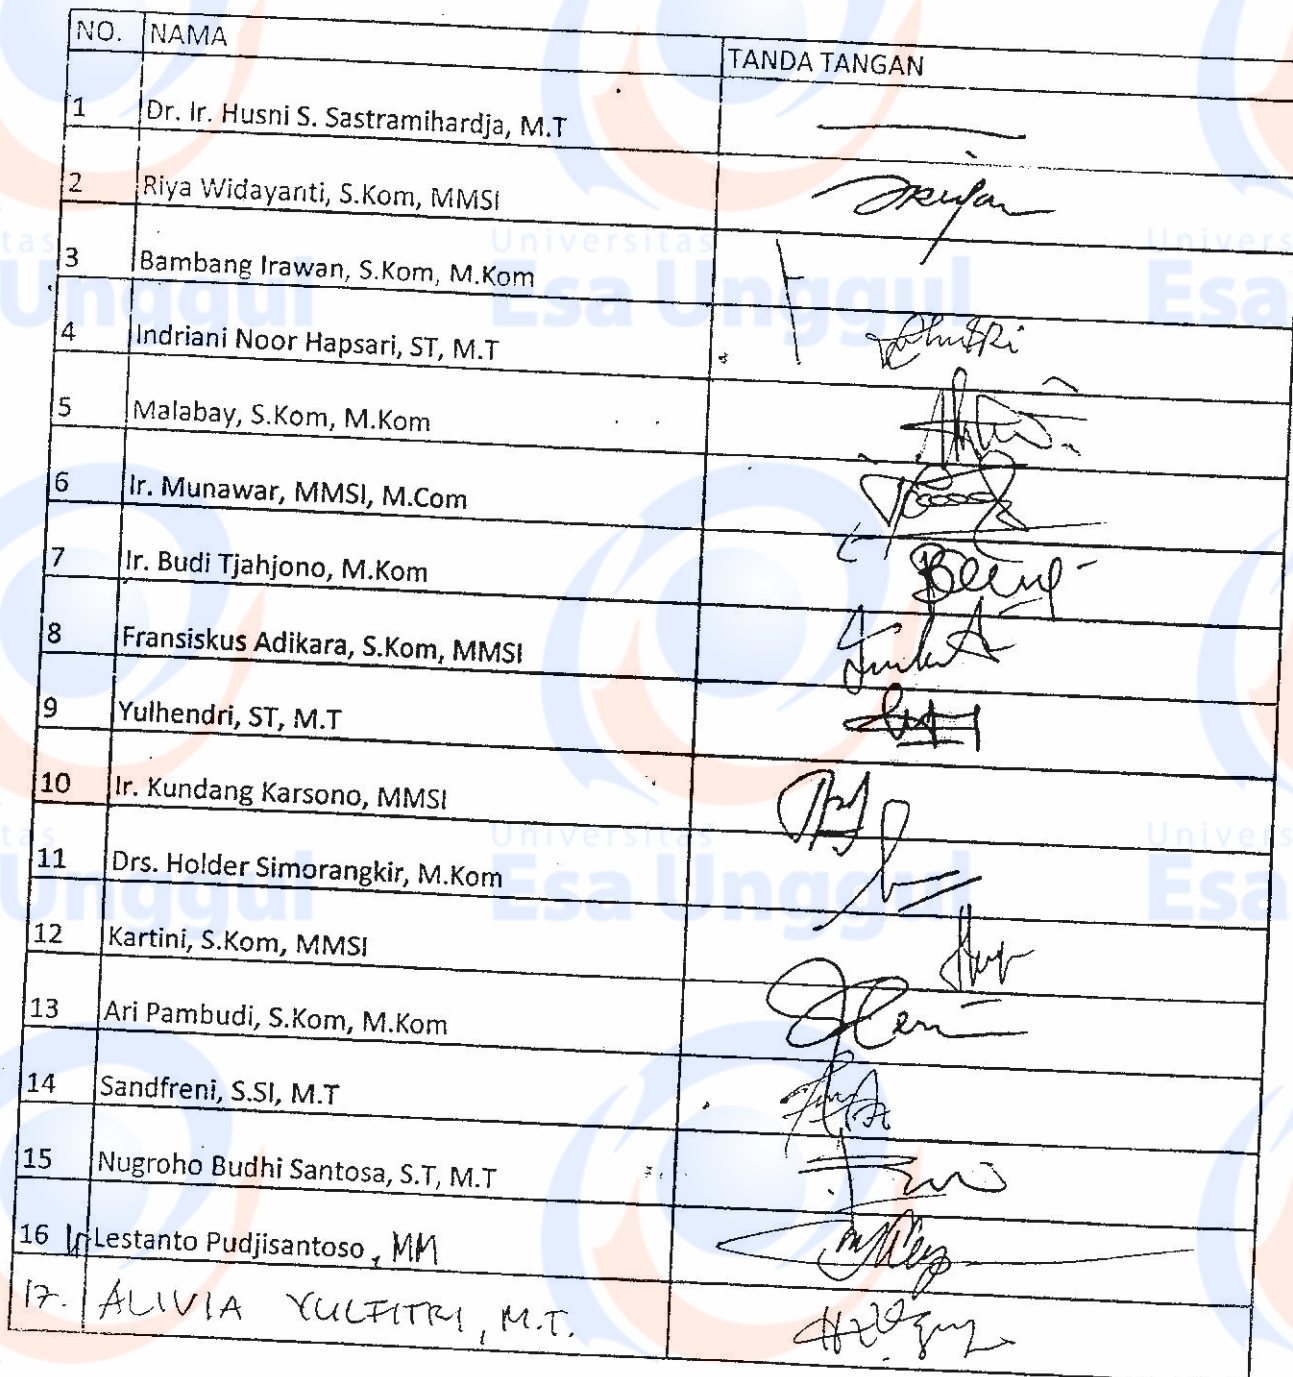 NO. NAMA TANDA TANGAN
1 Dr. Ir. Husni S. Sastramihardja, M.T
2 Riya Widayanti, S.Kom, MMSI
3 Bambang Irawan, S.Kom, M.Kom
4 Indriani Noor Hapsari, ST, M.T
5 Malabay, S.Kom, M.Kom
6 Ir. Munawar, MMSI, M.Com
7 Ir. Budi Tjahjono, M.Kom
8 Fransiskus Adikara, S.Kom, MMSI
9 Yulhendri, ST, M.T
10 Ir. Kundang Karsono, MMSI
11 Drs. Holder Simorangkir, M.Kom
12 Kartini, S.Kom, MMSI
13 Ari Pambudi, S.Kom, M.Kom
14 Sandfreni, S.SI, M.T
15 Nugroho Budhi Santosa, S.T, M.T
16 Ir Lestanto Pudjisantoso, MM
17. ALIVIA YULFITRI, M.T.
Universitas
Esa Unggul
Universitas
Esa Unggul